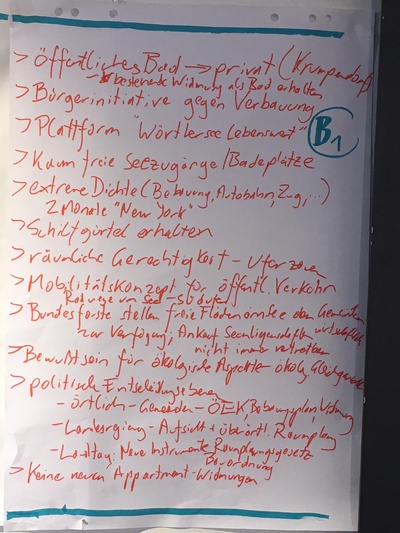 > öffentliches Bad → privat (Krumpendorf)
→ bestehende Widmung als Bad erhalten
> Bürgerinitiative gegen Verbauung
> Plattform "Wörthersee Lebenswert"
B1
> Kaum freie Seezugänge/Badeplätze
> extreme Dichte (Bebauung, Autobahn, Zug, ...)
2 Monate "New York"
> Schilfgürtel erhalten
> räumliche Gerechtigkeit - Uferzonen
> Mobilitätskonzept für öffentl. Verkehr
Radwege um See - Südufer
> Bundesforste stellen freie Flächen am See den Gemeinden
zur Verfügung, Ankauf Seeliegenschaften wirtschaftlich
nicht immer vertretbar
> Bewußtsein für ökologische Aspekte - ökolog. Gleichgewicht
> politische Entscheidungsebenen
- örtlich - Gemeinden - ÖEK, Bebauungsplan, Widmung
- Landesregierung - Aufsicht + überörtl. Raumplanung
- Landtag: Neue Instrumente Raumplanungsgesetz
Bauordnung
> Keine neuen Appartment-Widmungen